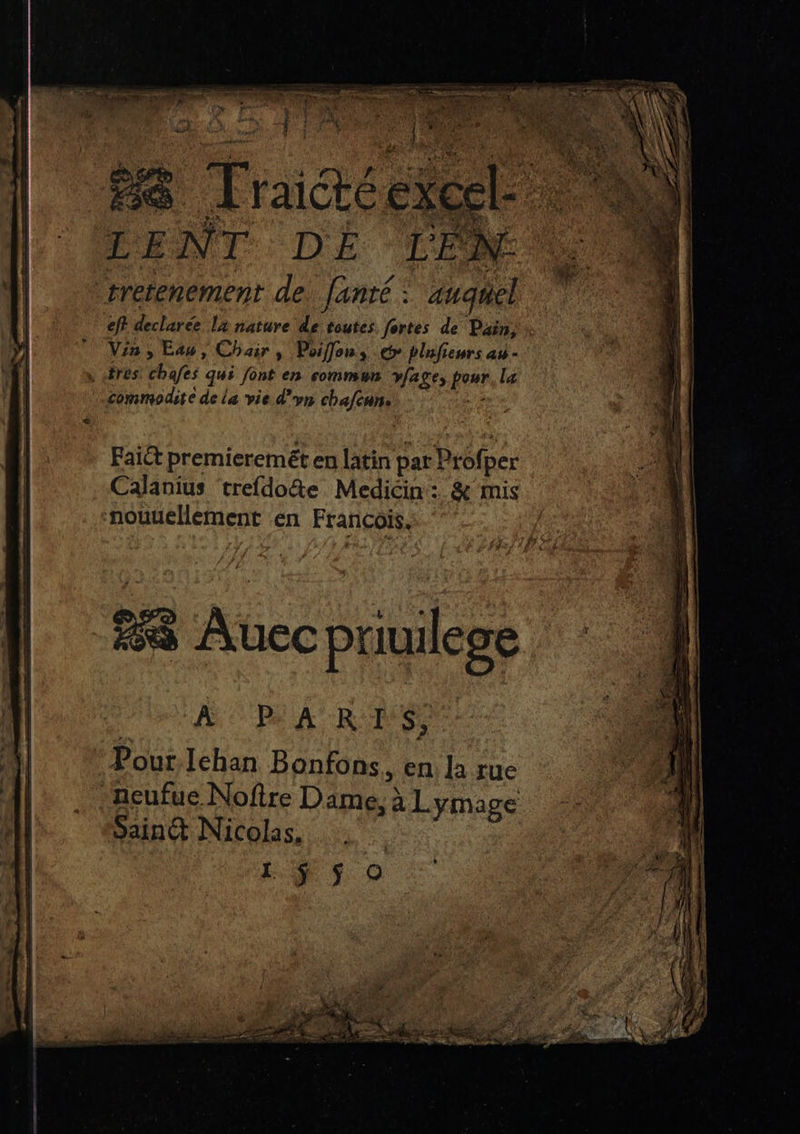 ❧ Traicté excel-
LENT DE L'EN-
tretenement de ſanté : auquel
eſt declarée la nature de toutes ſortes de Pain,
Vin, Eau, Chair, Poiſſon, & pluſieurs au-
tres choſes qui ſont en commun vſage, pour la
commodité de la vie d'vn chaſcun.
Faict premieremẽt en latin par Proſper
Calanius treſdocte Medicin : & mis
nouuellement en Francois.
❧ Auec priuilege
A PARIS,
Pour Iehan Bonfons, en la rue
neufue Noſtre Dame, à Lymage
Sainct Nicolas.
1550